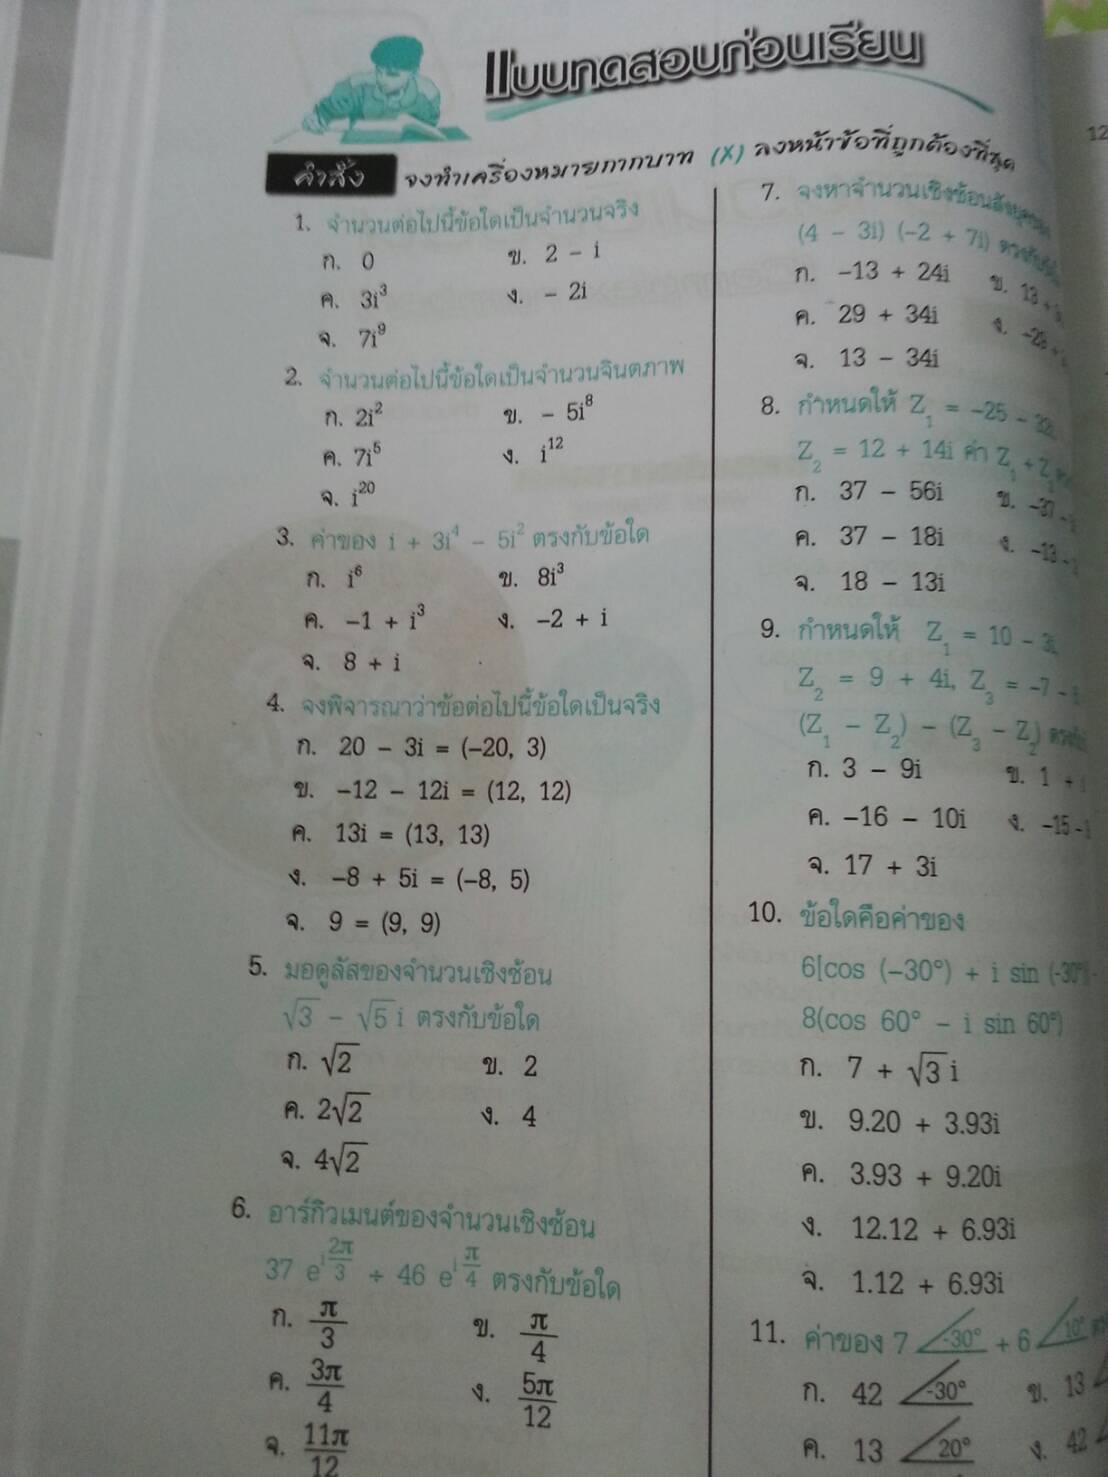 แบบทดสอบก่อนเรียน
คำสั่ง จงทำเครื่องหมายกากบาท (X) ลงหน้าข้อที่ถูกต้องที่สุด
1. จำนวนต่อไปนี้ข้อใดเป็นจำนวนจริง
ก. 0 ข. 2 - i
ค. 3i³ ง. - 2i
จ. 7i⁹
2. จำนวนต่อไปนี้ข้อใดเป็นจำนวนจินตภาพ
ก. 2i² ข. - 5i⁸
ค. 7i⁵ ง. i¹²
จ. i²⁰
3. ค่าของ i + 3i⁴ - 5i² ตรงกับข้อใด
ก. i⁶ ข. 8i³
ค. -1 + i³ ง. -2 + i
จ. 8 + i
4. จงพิจารณาว่าข้อต่อไปนี้ข้อใดเป็นจริง
ก. 20 - 3i = (-20, 3)
ข. -12 - 12i = (12, 12)
ค. 13i = (13, 13)
ง. -8 + 5i = (-8, 5)
จ. 9 = (9, 9)
5. มอดูลัสของจำนวนเชิงซ้อน
√3 - √5 i ตรงกับข้อใด
ก. √2 ข. 2
ค. 2√2 ง. 4
จ. 4√2
6. อาร์กิวเมนต์ของจำนวนเชิงซ้อน
37 e^(i 2π/3) ÷ 46 e^(i π/4) ตรงกับข้อใด
ก. π/3 ข. π/4
ค. 3π/4 ง. 5π/12
จ. 11π/12
7. จงหาจำนวนเชิงซ้อน
(4 - 3i) (-2 + 7i)
ก. -13 + 24i ข. 13 +
ค. 29 + 34i ง.
จ. 13 - 34i
8. กำหนดให้ Z₁ = -25 -
Z₂ = 12 + 14i ค่า Z₁ + Z₂
ก. 37 - 56i ข. -37 -
ค. 37 - 18i ง. -13 -
จ. 18 - 13i
9. กำหนดให้ Z₁ = 10 - 3i,
Z₂ = 9 + 4i, Z₃ = -7 -
(Z₁ - Z₂) - (Z₃ - Z₂)
ก. 3 - 9i ข. 1 +
ค. -16 - 10i ง. -15 -
จ. 17 + 3i
10. ข้อใดคือค่าของ
6[cos (-30°) + i sin (-30°)]
8(cos 60° - i sin 60°)
ก. 7 + √3 i
ข. 9.20 + 3.93i
ค. 3.93 + 9.20i
ง. 12.12 + 6.93i
จ. 1.12 + 6.93i
11. ค่าของ 7 ∠-30° + 6 ∠10°
ก. 42 ∠-30° ข. 13
ค. 13 ∠20° ง. 42
12